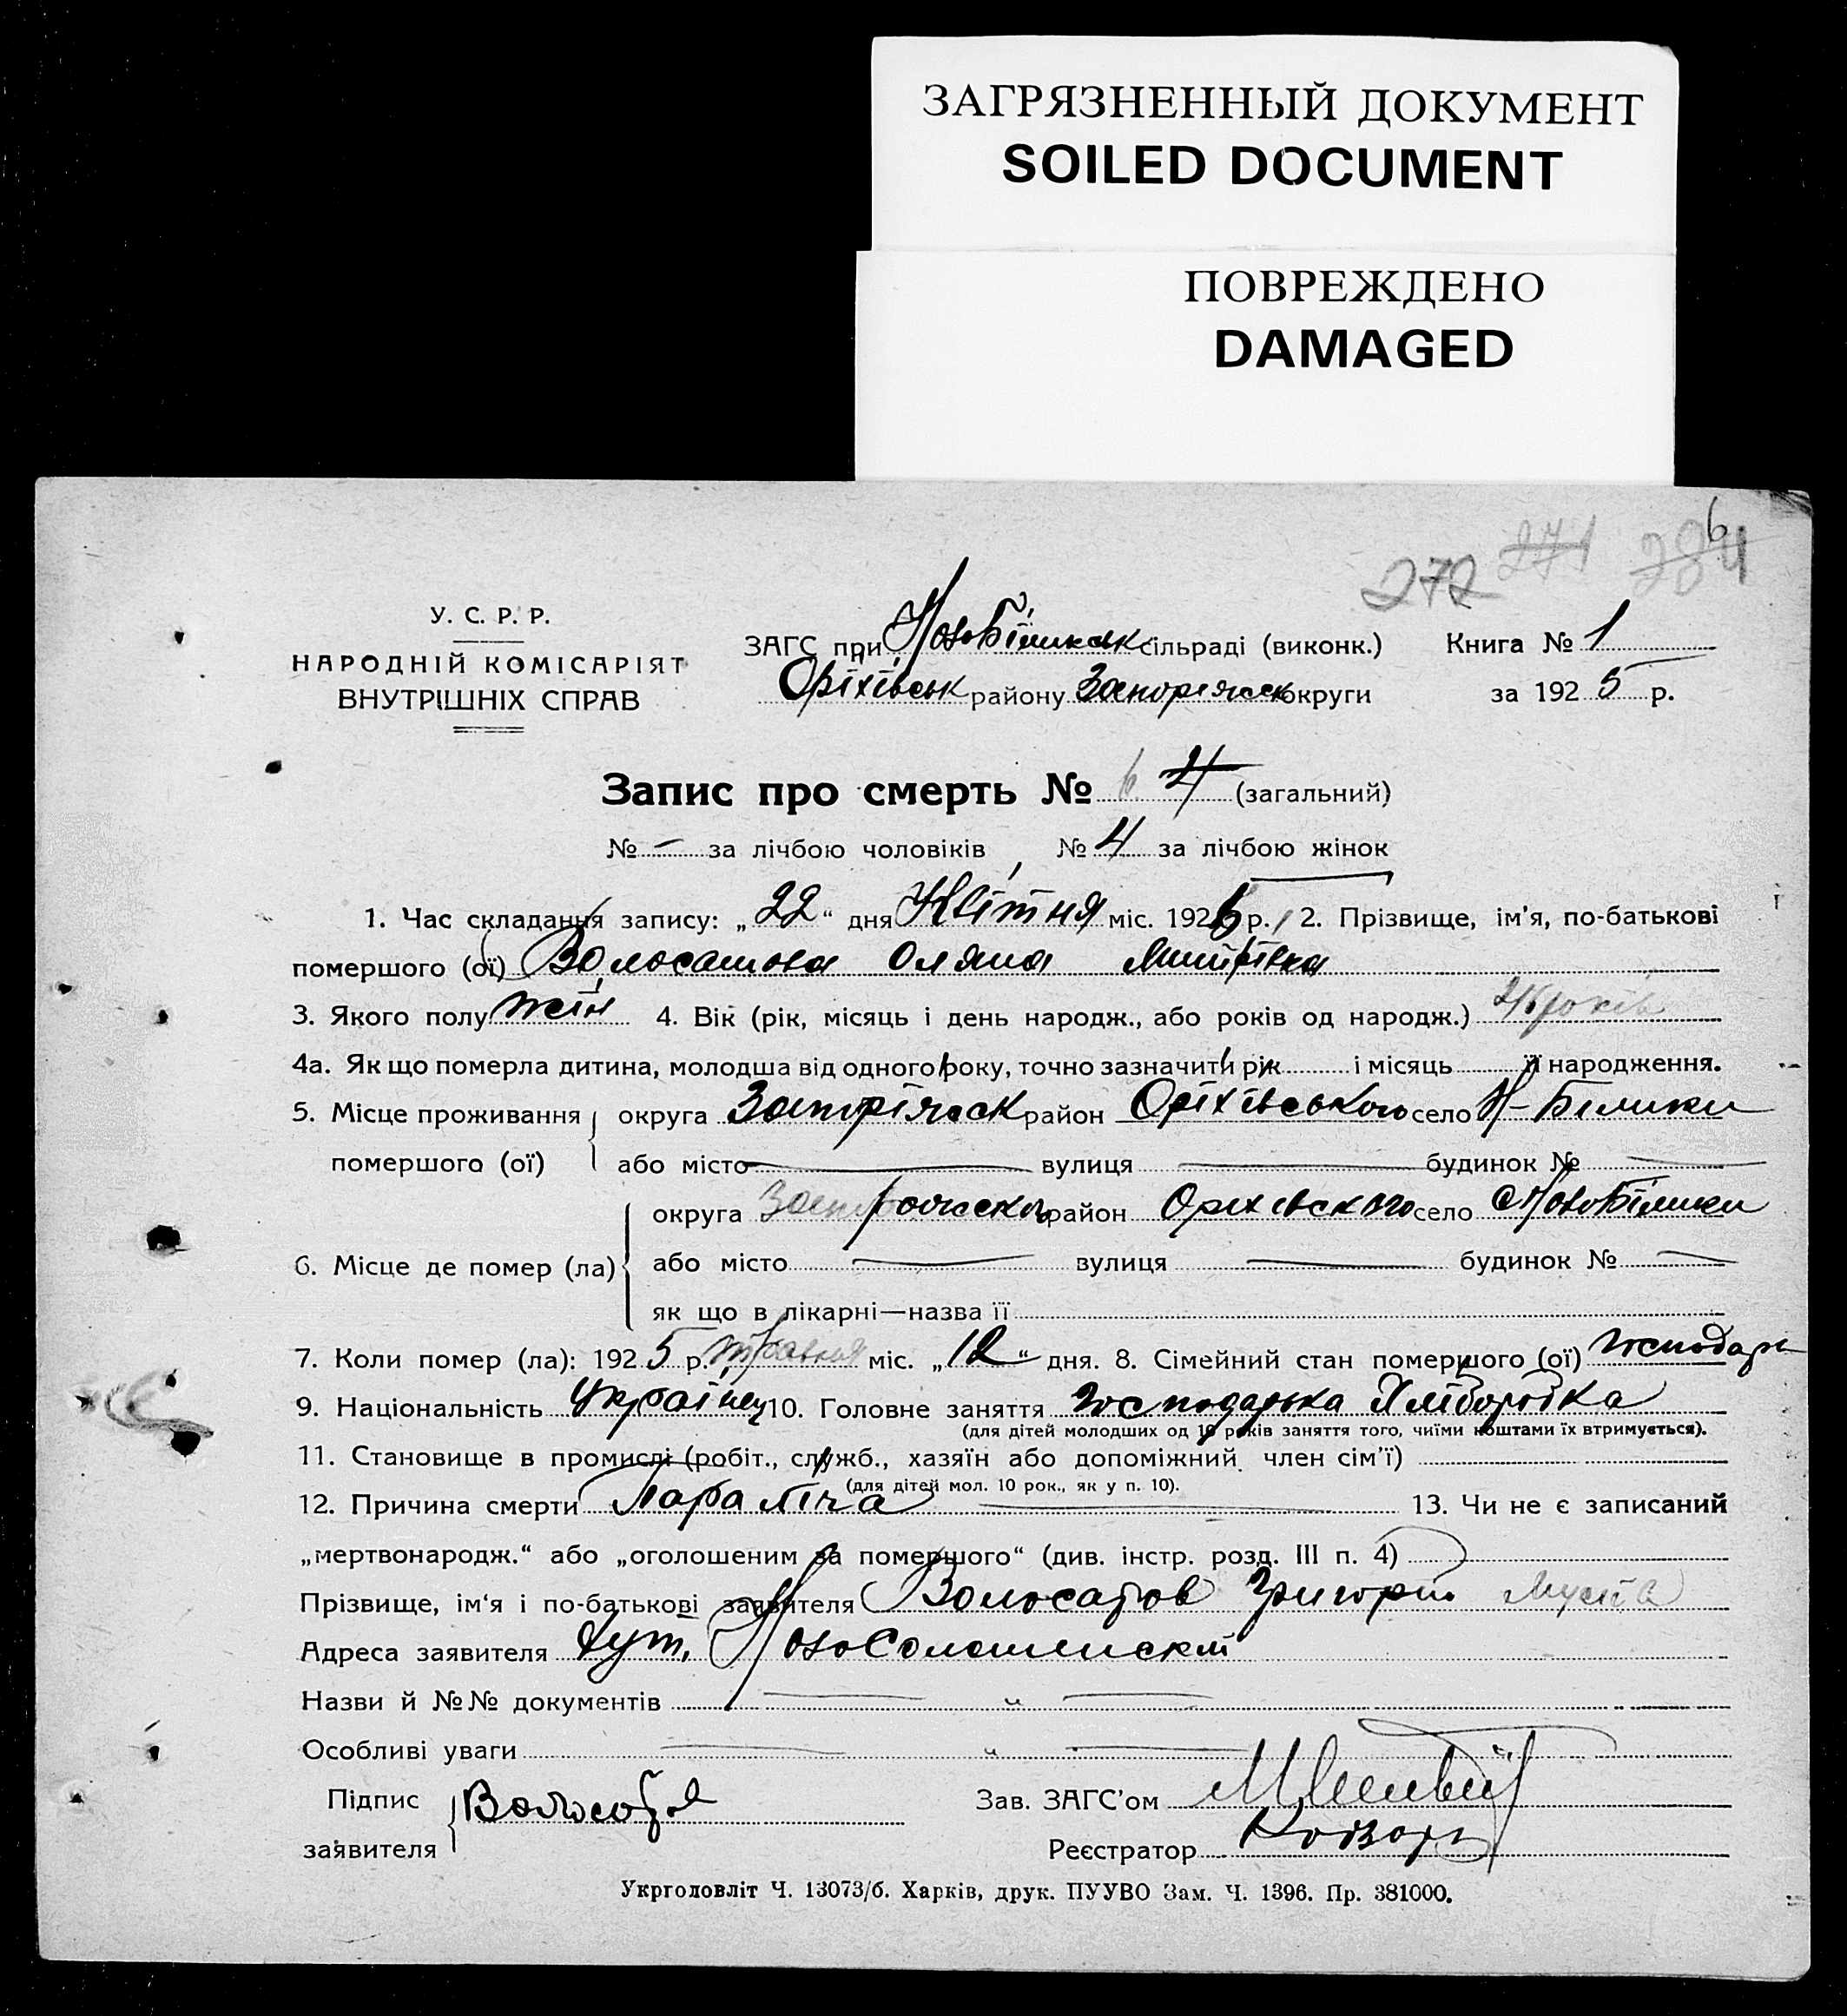 ЗАГРЯЗНЕННЫЙ ДОКУМЕНТ
SOILED DOCUMENT
ПОВРЕЖДЕНО
DAMAGED
272 271 284 6
У. С. Р. Р.
НАРОДНІЙ КОМІСАРІЯТ
ВНУТРІШНІХ СПРАВ
ЗАГС при НовоБіликськ сільраді (виконк.) Книга № 1
Оріхівськ району Запоріжськ округи за 192 5 р.
Запис про смерть № 6 4 (загальний)
№ — за лічбою чоловіків № 4 за лічбою жінок
1. Час складання запису: „22“ дня Квітня міс. 1926 р. 2. Прізвище, ім'я, по-батькові
помершого (ої) Оляна
3. Якого полу жін 4. Вік (рік, місяць і день народж., або років од народж.) років
4а. Як що померла дитина, молодша від одного року, точно зазначити рік і місяць її народження.
5. Місце проживання округа Запоріжськ район Оріхівського село Н-Білики
помершого (ої) або місто — вулиця — будинок № —
округа район Оріхівського село НовоБілики
6. Місце де помер (ла)
або місто — вулиця — будинок № —
як що в лікарні—назва її
7. Коли помер (ла): 192 5 р. травня міс. „12“ дня. 8. Сімейний стан помершого (ої) господарь
9. Національність Українец 10. Головне заняття Господарька Хліборобка
(для дітей молодших од 10 років заняття того, чиїми коштами їх втримується).
11. Становище в промислі (робіт., служб., хазяїн або допоміжний член сім'ї)
(для дітей мол. 10 рок., як у п. 10).
12. Причина смерти Параліча — 13. Чи не є записаний
„мертвонародж.“ або „оголошеним за помершого“ (див. інстр. розд. III п. 4)
Прізвище, ім'я і по-батькові заявителя Волосатов Григорій
Адреса заявителя хут.
Назви й №№ документів — „ —
Особливі уваги — „ —
Підпис
заявителя
Волосатов
Зав. ЗАГС'ом
Реєстратор
Укрголовліт Ч. 13073/б. Харків, друк. ПУУВО Зам. Ч. 1396. Пр. 381000.